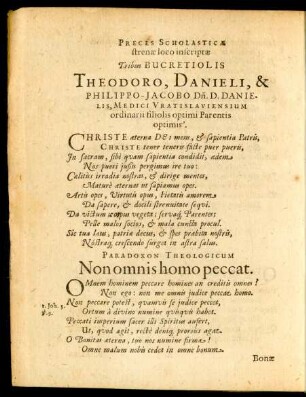 PRECES SCHOLASTICÆ
strenæ loco inscriptæ
Tribus BUCRETIOLIS
THEODORO, DANIELI, &
PHILIPPO-JACOBO Dñ. D. DANIE-
LIS, MEDICI VRATISLAVIENSIUM
ordinarii filiolis optimi Parentis
optimis.
CHRISTE æterna DEi mens, & sapientia Patris,
CHRISTE tener teneris fáite puer pueris,
In sacram, sibi quam sapientia condidit, ædem
Nos pueri jussu pergimus ire tuo:
Cælitus irradia nostras, & dirige mentes,
Maturè æternæ ut sapiamus opes.
Artis opes, Virtutis opus, Pietatis amorem
Da sapere, & docili strenuitate sequi.
Da victum corpus vegetā: servaq; Parentes:
Præ males socios, & mala cuncta procul.
Sic tua laus, patriæ decus, & spes præbita nostris,
Nostraq; crescendo surget in astra salus.
PARADOXON THEOLOGICUM
Non omnis homo peccat.
OMnem hominem peccare homines an creditis omnes?
Non ego: non me omnis judice peccat homo.
1. Joh. 3. Non peccare potest, quamvis se judice peccet,
℣. 9. Ortum à divino numine quisquis habet.
Peccati imperium sacer illi Spiritus aufert,
Ut, quod agit, rectè deniq; prorsus agat.
O Bonitas æterna, tuo nos numine firma!
Omne malum nobis cedet in omne bonum.
Bonæ